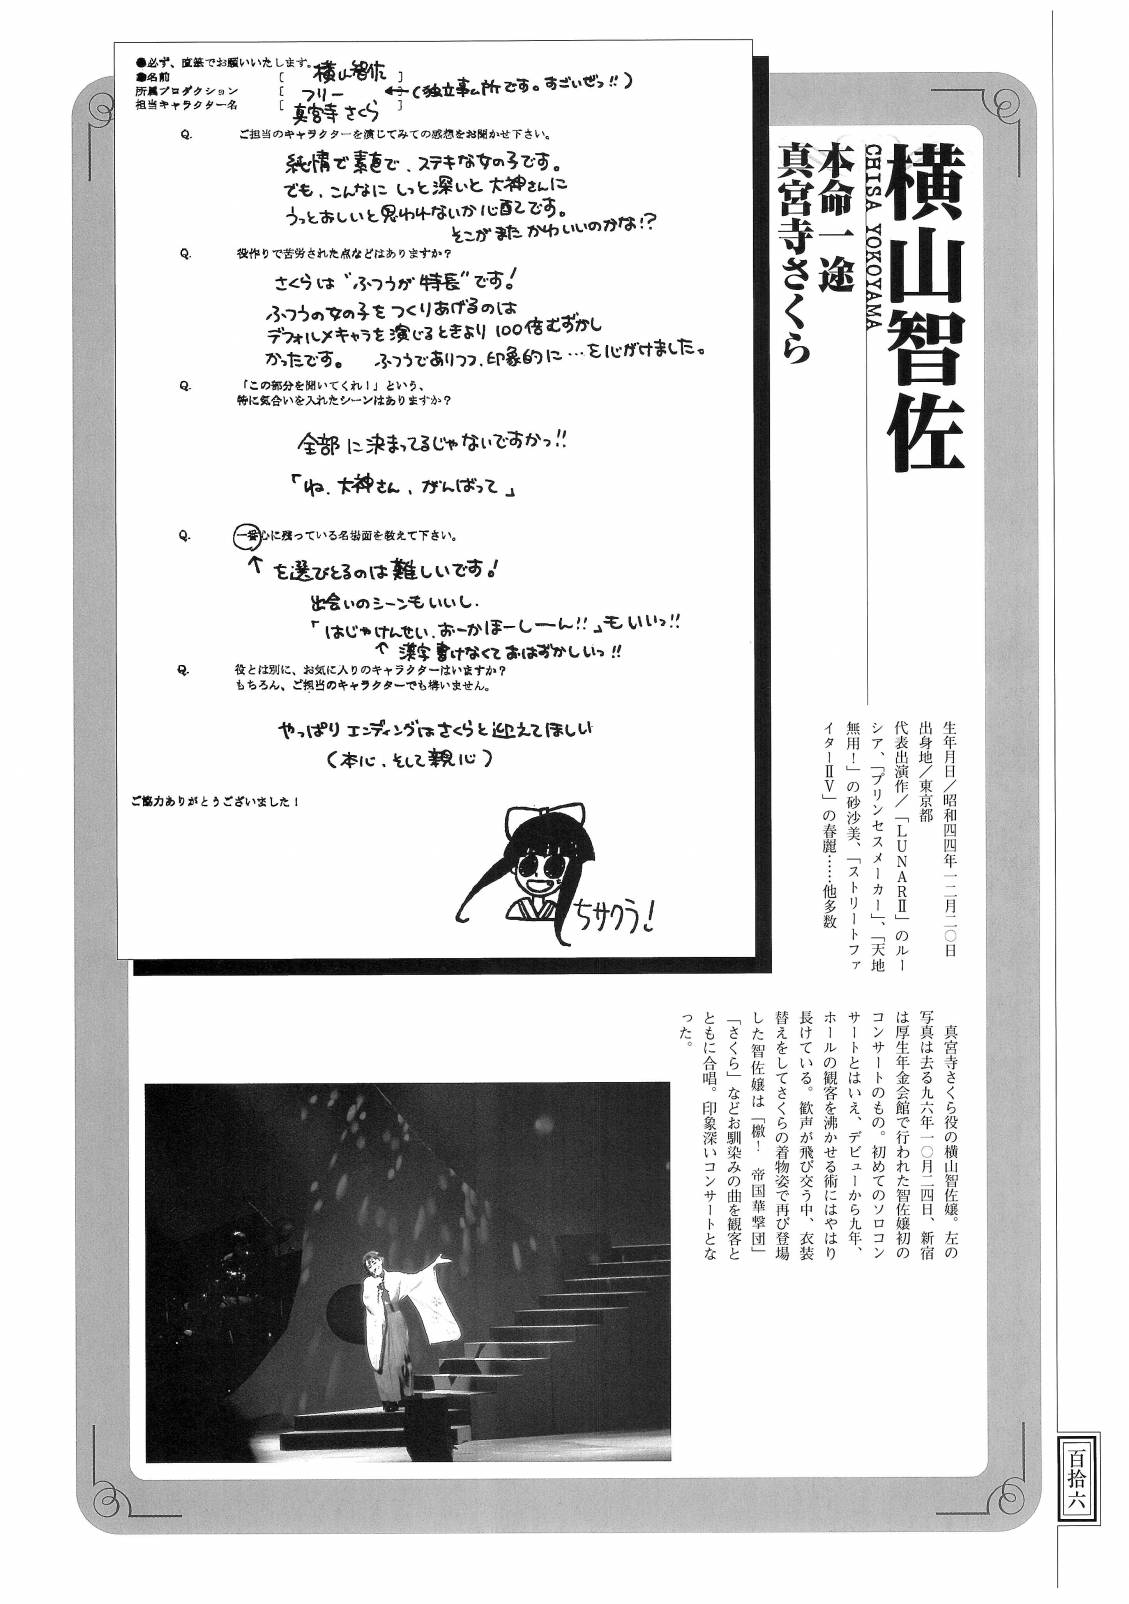 横山智佐
CHISA YOKOYAMA
本命一途
真宮寺さくら
●必ず、直筆でお願いいたします。
●名前 [ 横山智佐 ]
所属プロダクション [ フリー ] ←(独立事ム所です。すごいぜっ!!)
担当キャラクター名 [ 真宮寺さくら ]
Q. ご担当のキャラクターを演じてみての感想をお聞かせ下さい。
純情で素直で、ステキな女の子です。
でも、こんなにしっと深いと大神さんに
うっとおしいと思われないか心配です。
そこがまたかわいいのかな!?
Q. 役作りで苦労された点などはありますか?
さくらは“ふつうが特長”です!
ふつうの女の子をつくりあげるのは
デフォルメキャラを演じるときより100倍むずかし
かったです。 ふつうでありつつ、印象的に…を心がけました。
Q. 「この部分を聞いてくれ!」という、
特に気合いを入れたシーンはありますか?
全部に決まってるじゃないですかっ!!
「ね、大神さん、がんばって」
Q. 一番心に残っている名場面を教えて下さい。
↑を選びとるのは難しいです!
出会いのシーンもいいし、
「はじゃけんせい、おーかほーしーん!!」もいいっ!!
↑漢字書けなくておはずかしいっ!!
Q. 役とは別に、お気に入りのキャラクターはいますか?
もちろん、ご担当のキャラクターでも構いません。
やっぱりエンディングはさくらと迎えてほしい
(本心、そして親心)
ご協力ありがとうございました!
ちサクラ!
生年月日／昭和四四年一二月二〇日
出身地／東京都
代表出演作／「LUNARⅡ」のルー
シア、「プリンセスメーカー」、「天地
無用!」の砂沙美、「ストリートファ
イターⅡV」の春麗……他多数
真宮寺さくら役の横山智佐嬢。左の
写真は去る九六年一〇月二四日、新宿
は厚生年金会館で行われた智佐嬢初の
コンサートのもの。初めてのソロコン
サートとはいえ、デビューから九年、
ホールの観客を沸かせる術にはやはり
長けている。歓声が飛び交う中、衣装
替えをしてさくらの着物姿で再び登場
した智佐嬢は「檄! 帝国華撃団」
「さくら」などお馴染みの曲を観客と
ともに合唱。印象深いコンサートとな
った。
百拾六